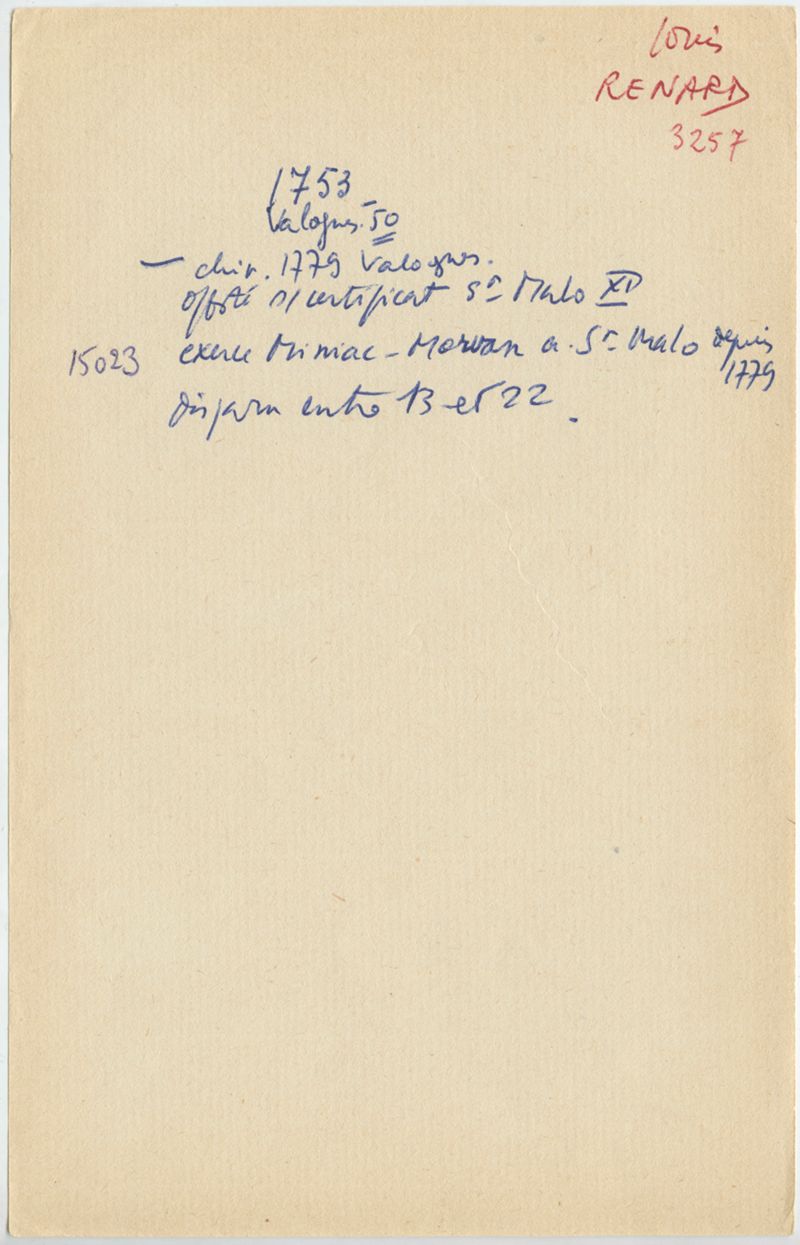 Louis
RENARD
3257
1753
Valognes. 50
- chir. 1779 Valognes.
offté s/certificat St Malo XI
15023 exerce Miniac-Morvan a. St Malo depuis
1779
Disparu entre 13 et 22.